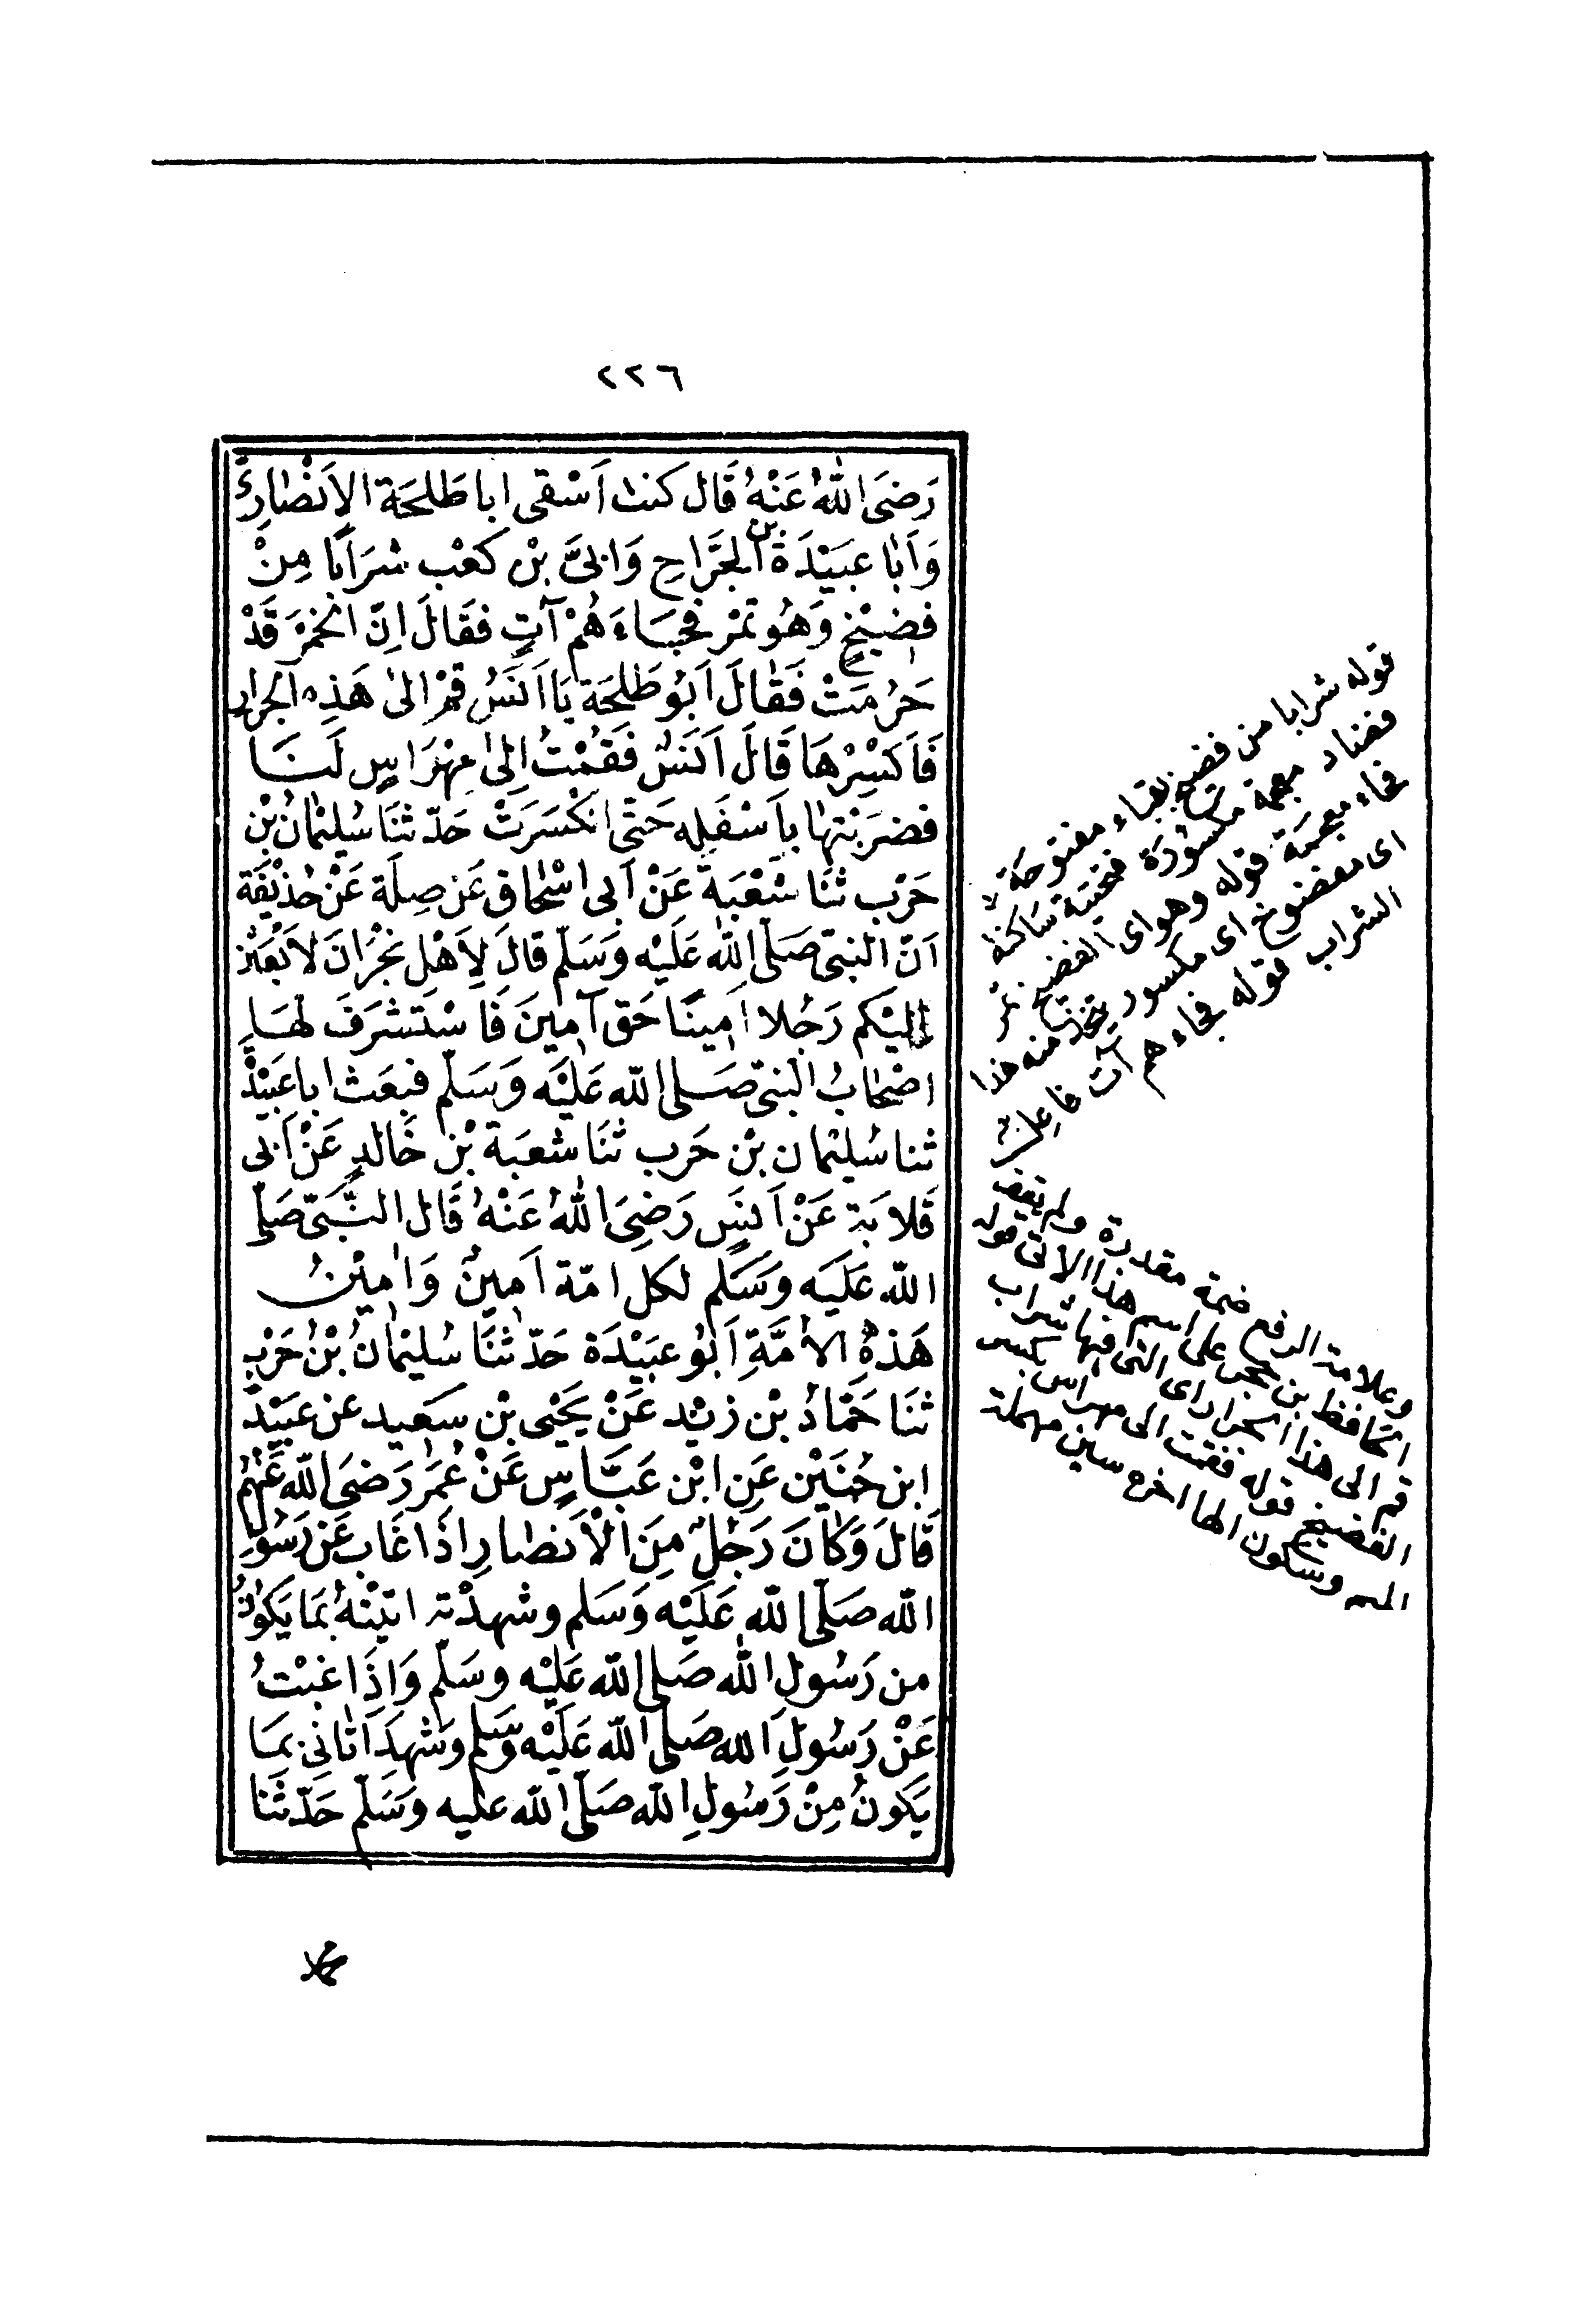 ٢٢٦
رَضيَ اللهُ عَنْهُ قَال كنت اَسْقى ابا طَلحَة الاَنْصَارِىَّ
وَاَبَا عبَيْدَة بن الجَرَّاحِ وَابىَّ بْن كعْب شرَابًا مِنْ
فضيْخٍ وَهُو تمْر فجَاءَهُمْ آتٍ فقَالَ اِنّ الخمرَ قَدْ
حَرُمَتْ فَقَالَ اَبُو طَلحَة يَا اَنَسُ قمْ الىٰ هَذِه الجرار
فَاَكْسِرْهَا قَالَ اَنَسٌ فَقمْتُ اِلىٰ مِهْرَاسٍ لَنَا
فضرَبْتهَا بِاَسْفَلِه حَتّى انكْسَرَتْ حَدّثنَا سُليْمَانُ بْن
حَرْب ثنَا شعْبَة عَنْ اَبى اسْحَاق عَن صِلَة عَنْ حُذيْفَة
اَنّ النبىّ صَلّى الله عَلَيْه وَسَلّم قالَ لِاَهْل نَجْرَانَ لاَبْعَثن
اليْكم رَجُلا امينًا حَق آمِينَ فَاسْتَشرَفَ لهَا
اصْحَابُ النبىّ صَلى الله عَلَيْه وَسَلّم فبعَث ابا عبَيْدَة
ثنا سُليْمان بْن حَرب ثنَا شعبَة بْن خَالدٍ عَنْ اَبى
قلابَة عَنْ اَنَسٍ رَضيَ اللهُ عَنْهُ قَال النَّبىّ صَلى
الله عَلَيَه وَسَلم لكل امّة اَمِينٌ وَاَمِيْنُ
هَذِهِ الاُمَّةِ اَبُو عبَيْدَة حَدّثنَا سُليْمَانُ بْنُ حَرْبٍ
ثنَا حَمّادُ بْن زيْد عَنْ يَحْيٰى بْن سَعيد عن عبَيْدَ
ابن حُنَيْن عَنِ ابْن عَبَّاسٍ عَنْ عُمَر رَضىَ الله عَنْهُمْ
قَالَ وَكَانَ رَجُلٌ مِنَ الْاَنصَارِ اِذَا غَاب عَن رَسُولِ
الله صَلّى الله عَلَيْه وَسَلم وشهدْته اتيْتهُ بمَا يَكوُنُ
من رَسُولِ الله صَلى الله عَليْه وسَلّم وَاِذَا غبْتُ
عَنْ رَسُولِ الله صَلّى الله عَلَيْه وَسَلم وَشهدَ اَتَانى بمَا
يَكونُ مِنْ رَسُولِ الله صَلّى الله عليه وَسَلّم حَدّثَنا
قوله شرابا من فضيخ بفاء مفتوحة
فضاد معجمة مكسورة فتحتية ساكنة
فخاء معجمة قوله وهو اى الفضيخ تمر
اى مفضوخ اى مكسور يتخذ منه هذا
الشراب قوله فجاءهم آت فاعل
وعلامة الرفع ضمة مقدرة ولم يقف
الحافظ بن حجر على اسم هذا الآتى قوله
قم الى هذا الجرار اى التى فيها شراب
الفضيخ قوله فقمت الى مهراس بكسر
الميم وسكون الها اخره سين مهملة